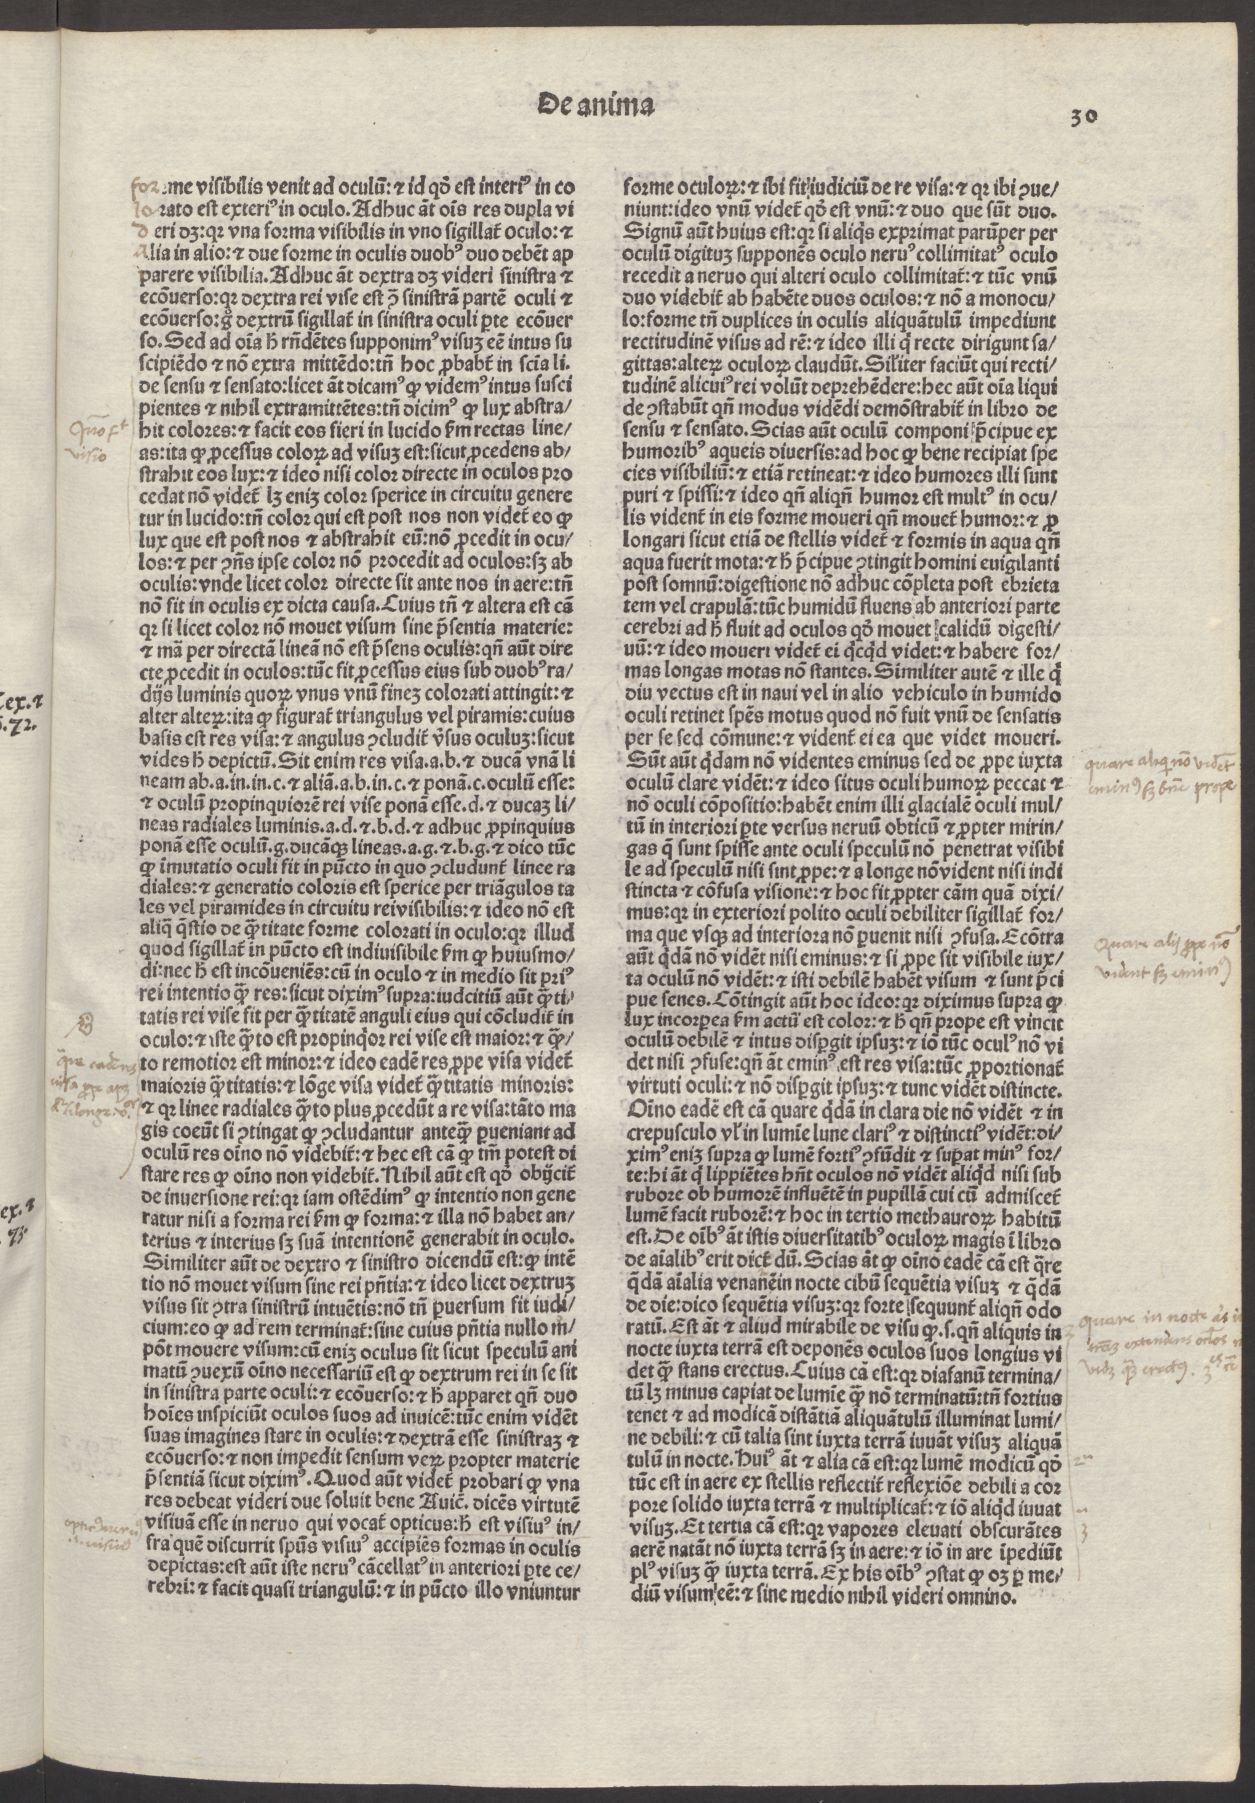 De anima
30
forme visibilis venit ad oculū: ⁊ id qd̄ est interiꝰ in co
lorato est exteriꝰ in oculo. Adhuc āt oīs res dupla vi
deri dꝫ: qꝛ vna forma visibilis in vno sigillat̄ oculo: ⁊
Alia in alio: ⁊ due forme in oculis duobꝰ duo debēt ap
parere visibilia. Adhuc āt dextra dꝫ videri sinistra ⁊
ecōuerso: qꝛ dextra rei vise est ꝯ̄ sinistrā partē oculi ⁊
ecōuerso: g̊ dextrū sigillat̄ in sinistra oculi ꝑte ecōuer
so. Sed ad oīa h̄ rn̄dētes supponimꝰ visuꝫ eē intus su
scipiēdo ⁊ nō extra mittēdo: tn̄ hoc ꝓbabt̄ in scīa li.
de sensu ⁊ sensato: licet āt dicamꝰ ꝙ videmꝰ intus susci
pientes ⁊ nihil extramittētes: tn̄ dicimꝰ ꝙ lux abstra/
hit colores: ⁊ facit eos fieri in lucido ẜm rectas line/
as: ita ꝙ ꝓcessus coloꝝ ad visuꝫ est: sicut ꝓcedens ab/
strahit eos lux: ⁊ ideo nisi color directe in oculos pro
cedat nō videt̄ lꝫ eniꝫ color sperice in circuitu genere
tur in lucido: tn̄ color qui est post nos non videt̄ eo ꝙ
lux que est post nos ⁊ abstrahit eū: nō ꝓcedit in ocu/
los: ⁊ per ꝯn̄s ipse color nō procedit ad oculos: sꝫ ab
oculis: vnde licet color directe sit ante nos in aere: tn̄
nō fit in oculis ex dicta causa. Cuius tn̄ ⁊ altera est cā
qꝛ si licet color nō mouet visum sine p̄sentia materie:
⁊ mā per directā lineā nō est p̄sens oculis: qn̄ aūt dire
cte ꝓcedit in oculos: tūc fit ꝓcessus eius sub duobꝰ ra/
dijs luminis quoꝝ vnus vnū fineꝫ colorati attingit: ⁊
alter alteꝝ: ita ꝙ figurat̄ triangulus vel piramis: cuius
basis est res visa: ⁊ angulus ꝯcludit̄ v̄sus oculuꝫ: sicut
vides h̄ depictū. Sit enim res visa .a.b. ⁊ ducā vnā li
neam ab .a. in .c. ⁊ aliā .a.b. in .c. ⁊ ponā .c. oculū esse:
⁊ oculū propinquiorē rei vise ponā esse .d. ⁊ ducaꝫ li/
neas radiales luminis .a.d. ⁊ .b.d. ⁊ adhuc ꝓpinquius
ponā esse oculū .g. ducāqꝫ lineas .a.g. ⁊ .b.g. ⁊ dico tūc
ꝙ īmutatio oculi fit in pūcto in quo ꝯcludunt̄ linee ra
diales: ⁊ generatio coloris est sperice per triāgulos ta
les vel piramides in circuitu rei visibilis: ⁊ ideo nō est
aliq̄ q̄stio de q̄titate forme colorati in oculo: qꝛ illud
quod sigillat̄ in pūcto est indiuisibile ẜm ꝙ huiusmo/
di: nec h̄ est incōueniēs: cū in oculo ⁊ in medio sit priꝰ
rei intentio q̄ꝫ res: sicut diximꝰ supra: iudcitiū aūt q̄ti/
tatis rei vise fit per q̄titatē anguli eius qui cōcludit̄ in
oculo: ⁊ iste q̄to est propinqͥor rei vise est maior: ⁊ q̄/
to remotior est minor: ⁊ ideo eadē res ꝓpe visa videt̄
maioris q̄titatis: ⁊ lōge visa videt̄ q̄titatis minoris:
⁊ qꝛ linee radiales q̄to plus ꝓcedūt a re visa: tāto ma
gis coeūt si ꝯtingat ꝙ ꝯcludantur anteq̄ꝫ ꝑueniant ad
oculū res oīno nō videbit̄: ⁊ hec est cā ꝙ tm̄ potest di
stare res ꝙ oīno non videbit̄. Nihil aūt est qd̄ obijcit̄
de inuersione rei: qꝛ iam ostēdimꝰ ꝙ intentio non gene
ratur nisi a forma rei ẜm ꝙ forma: ⁊ illa nō habet an/
terius ⁊ interius sꝫ suā intentionē generabit in oculo.
Similiter aūt de dextro ⁊ sinistro dicendū est: ꝙ intē
tio nō mouet visum sine rei pn̄tia: ⁊ ideo licet dextruꝫ
visus sit ꝯtra sinistrū intuētis: nō tn̄ ꝑuersum fit iudi/
cium: eo ꝙ ad rem terminat̄: sine cuius pn̄tia nullo m/
pōt mouere visum: cū eniꝫ oculus sit sicut speculū ani
matū ꝯuexū oīno necessariū est ꝙ dextrum rei in se sit
in sinistra parte oculi: ⁊ ecōuerso: ⁊ h̄ apparet qn̄ duo
hoīes inspiciūt oculos suos ad inuicē: tūc enim vidēt
suas imagines stare in oculis: ⁊ dextrā esse sinistraꝫ ⁊
ecōuerso: ⁊ non impedit sensum veꝝ propter materie
p̄sentiā sicut diximꝰ. Quod aūt videt̄ probari ꝙ vna
res debeat videri due soluit bene Auic̄. dicēs virtutē
visiuā esse in neruo qui vocat̄ opticus: h̄ est visiuꝰ in/
fra quē discurrit spūs visiuꝰ accipiēs formas in oculis
depictas: est aūt iste neruꝰ cācellatꝰ in anteriori ꝑte ce/
rebri: ⁊ facit quasi triangulū: ⁊ in pūcto illo vniuntur
forme oculoꝝ: ⁊ ibi fit iudiciū de re visa: ⁊ qꝛ ibi ꝯue/
niunt: ideo vnū videt̄ qd̄ est vnū: ⁊ duo que sūt duo.
Signū aūt huius est: qꝛ si aliqͥs exprimat parūper per
oculū digituꝫ supponēs oculo neruꝰ collimitatꝰ oculo
recedit a neruo qui alteri oculo collimitat̄: ⁊ tūc vnū
duo videbit̄ ab habēte duos oculos: ⁊ nō a monocu/
lo: forme tn̄ duplices in oculis aliquātulū impediunt
rectitudinē visus ad rē: ⁊ ideo illi qͥ recte dirigunt sa/
gittas: alteꝝ oculoꝝ claudūt. Sil̄iter faciūt qui recti/
tudinē alicuiꝰ rei volūt deprehēdere: hec aūt oīa liqui
de ꝯstabūt qn̄ modus vidēdi demōstrabit̄ in libro de
sensu ⁊ sensato. Scias aūt oculū componi p̄cipue ex
humoribꝰ aqueis diuersis: ad hoc ꝙ bene recipiat spe
cies visibiliū: ⁊ etiā retineat: ⁊ ideo humores illi sunt
puri ⁊ spissi: ⁊ ideo qn̄ aliqn̄ humor est multꝰ in ocu/
lis vident̄ in eis forme moueri qn̄ mouet̄ humor: ⁊ ꝓ
longari sicut etiā de stellis videt̄ ⁊ formis in aqua qn̄
aqua fuerit mota: ⁊ h̄ p̄cipue ꝯtingit homini euigilanti
post somnū: digestione nō adhuc cōpleta post ebrieta
tem vel crapulā: tūc humidū fluens ab anteriori parte
cerebri ad h̄ fluit ad oculos qd̄ mouet calidū digesti/
uū: ⁊ ideo moueri videt̄ ei qͥcqͥd videt: ⁊ habere for/
mas longas motas nō stantes. Similiter autē ⁊ ille qͥ
diu vectus est in naui vel in alio vehiculo in humido
oculi retinet spēs motus quod nō fuit vnū de sensatis
per se sed cōmune: ⁊ vident̄ ei ea que videt moueri.
Sūt aūt qͥdam nō videntes eminus sed de ꝓpe iuxta
oculū clare vidēt: ⁊ ideo situs oculi humoꝝ peccat ⁊
nō oculi cōpositio: habēt enim illi glacialē oculi mul/
tū in interiori ꝑte versus neruū obticū ⁊ ꝓpter mirin/
gas q̄ sunt spisse ante oculi speculū nō penetrat visibi
le ad speculū nisi sint ꝓpe: ⁊ a longe nō vident nisi indi
stincta ⁊ cōfusa visione: ⁊ hoc fit ꝓpter cām quā dixi/
mus: qꝛ in exteriori polito oculi debiliter sigillat̄ for/
ma que vsqꝫ ad interiora nō ꝑuenit nisi ꝯfusa. Ecōtra
aūt qͥdā nō vidēt nisi eminus: ⁊ si ꝓpe sit visibile iux/
ta oculū nō vidēt: ⁊ isti debilē habēt visum ⁊ sunt p̄ci
pue senes. Cōtingit aūt hoc ideo: qꝛ diximus supra ꝙ
lux incorꝑea ẜm actū est color: ⁊ h̄ qn̄ prope est vincit
oculū debilē ⁊ intus disꝑgit ipsuꝫ: ⁊ iō tūc oculꝰ nō vi
det nisi ꝯfuse: qn̄ āt eminꝰ est res visa: tūc ꝓportionat̄
virtuti oculi: ⁊ nō disꝑgit ipsuꝫ: ⁊ tunc vidēt distincte.
Oīno eadē est cā quare qͥdā in clara die nō vidēt ⁊ in
crepusculo vl̄ in lumīe lune clariꝰ ⁊ distinctiꝰ vidēt: di/
ximꝰ eniꝫ supra ꝙ lumē fortiꝰ ꝯfūdit ⁊ suꝑat minꝰ for/
te: hi āt qͥ lippiētes hn̄t oculos nō vidēt aliqͥd nisi sub
rubore ob humorē influētē in pupillā cui cū admiscet̄
lumē facit ruborē: ⁊ hoc in tertio methauroꝝ habitū
est. De oībꝰ āt istis diuersitatibꝰ oculoꝝ magis ī libro
de aīalibꝰ erit dictēdū. Scias āt ꝙ oīno eadē cā est q̄re
qͥdā aīalia venanēin nocte cibū sequētia visuꝫ ⁊ qͥdā
de die: dico sequētia visuꝫ: qꝛ forte sequunt̄ aliqn̄ odo
ratū. Est āt ⁊ aliud mirabile de visu ꝙ .s. qn̄ aliquis in
nocte iuxta terrā est deponēs oculos suos longius vi
det q̄ꝫ stans erectus. Cuius cā est: qꝛ diafanū termina/
tū lꝫ minus capiat de lumīe q̄ꝫ nō terminatū: tn̄ fortius
tenet ⁊ ad modicā distātiā aliquātulū illuminat lumi/
ne debili: ⁊ cū talia sint iuxta terrā iuuāt visuꝫ aliquā
tulū in nocte. Huiꝰ āt ⁊ alia cā est: qꝛ lumē modicū qd̄
tūc est in aere ex stellis reflectit̄ reflexiōe debili a cor
pore solido iuxta terrā ⁊ multiplicat̄: ⁊ iō aliqͥd iuuat
visuꝫ. Et tertia cā est: qꝛ vapores eleuati obscurātes
aerē natāt nō iuxta terrā sꝫ in aere: ⁊ iō in are īpediūt
plꝰ visuꝫ q̄ꝫ iuxta terrā. Ex his oībꝰ ꝯstat ꝙ oꝫ ꝑ me/
diū visum eē: ⁊ sine medio nihil videri omnino.
visio
quare aliqͥ nō vidēt
eminꝰ sꝫ bn̄ prope
Quare alij ꝓpe nō
vident sꝫ eminꝰ
quare in nocte
tex. ⁊
.72.
ex. ⁊
73.